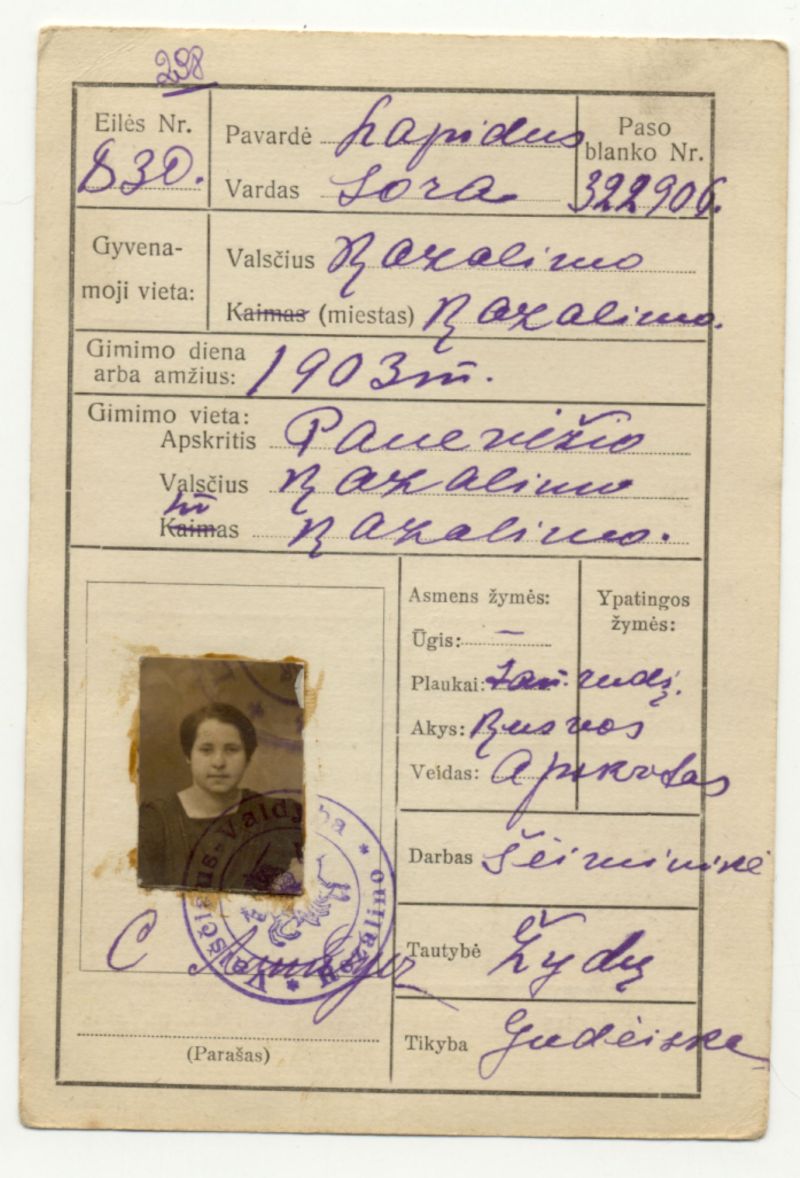 238
Eilės Nr. 830.
Pavardė Lapidus
Vardas Sora
Paso blanko Nr. 322906.
Gyvenamoji vieta:
Valsčius Rozalimo
Kaimas (miestas) Rozalimo.
Gimimo diena
arba amžius: 1903 m.
Gimimo vieta:
Apskritis Panevėžio
Valsčius Rozalimo
Kaimas Rozalimo.
Asmens žymės:
Ūgis: –
Plaukai: rudi.
Akys: Rusvos
Veidas: Apskritas
Ypatingos
žymės:
Darbas Šeimininkė
Tautybė Žydų
Tikyba
Valsčiaus Valdyba * Rozalimo *
(Parašas)